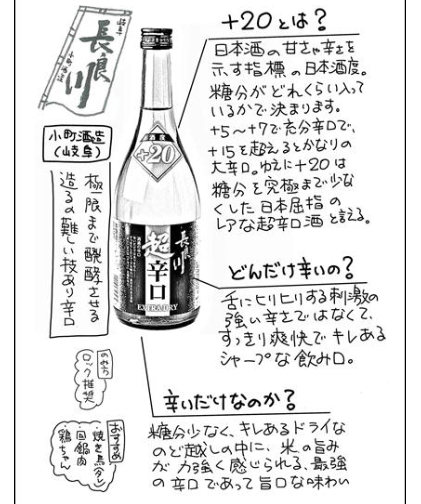 +20とは?
日本酒の甘さや辛さを
示す指標の日本酒度。
糖分がどれくらい入って
いるかで決まります。
+5~+7で充分辛口で、
+15を超えるとかなりの
大辛口。ゆえに+20は
糖分を究極まで少な
くした日本屈指の
レアな超辛口酒と言える。
岐阜
長良川
小町酒造
小町酒造
(岐阜)
極限まで醗酵させる
造るの難しい技あり辛口
+20
長良川
超辛口
EXTRA DRY
どんだけ辛いの?
舌にヒリヒリする刺激の
強い辛さではなくて、
すっきり爽快でキレある
シャープな飲み口。
のみ方
ロック推奨
辛いだけなのか?
糖分少なく、キレあるドライな
のど越しの中に、米の旨み
が力強く感じられる、最強
の辛口であって旨口な味わい
おすすめ
・焼き鳥(タレ)
・回鍋肉
・鶏ちゃん